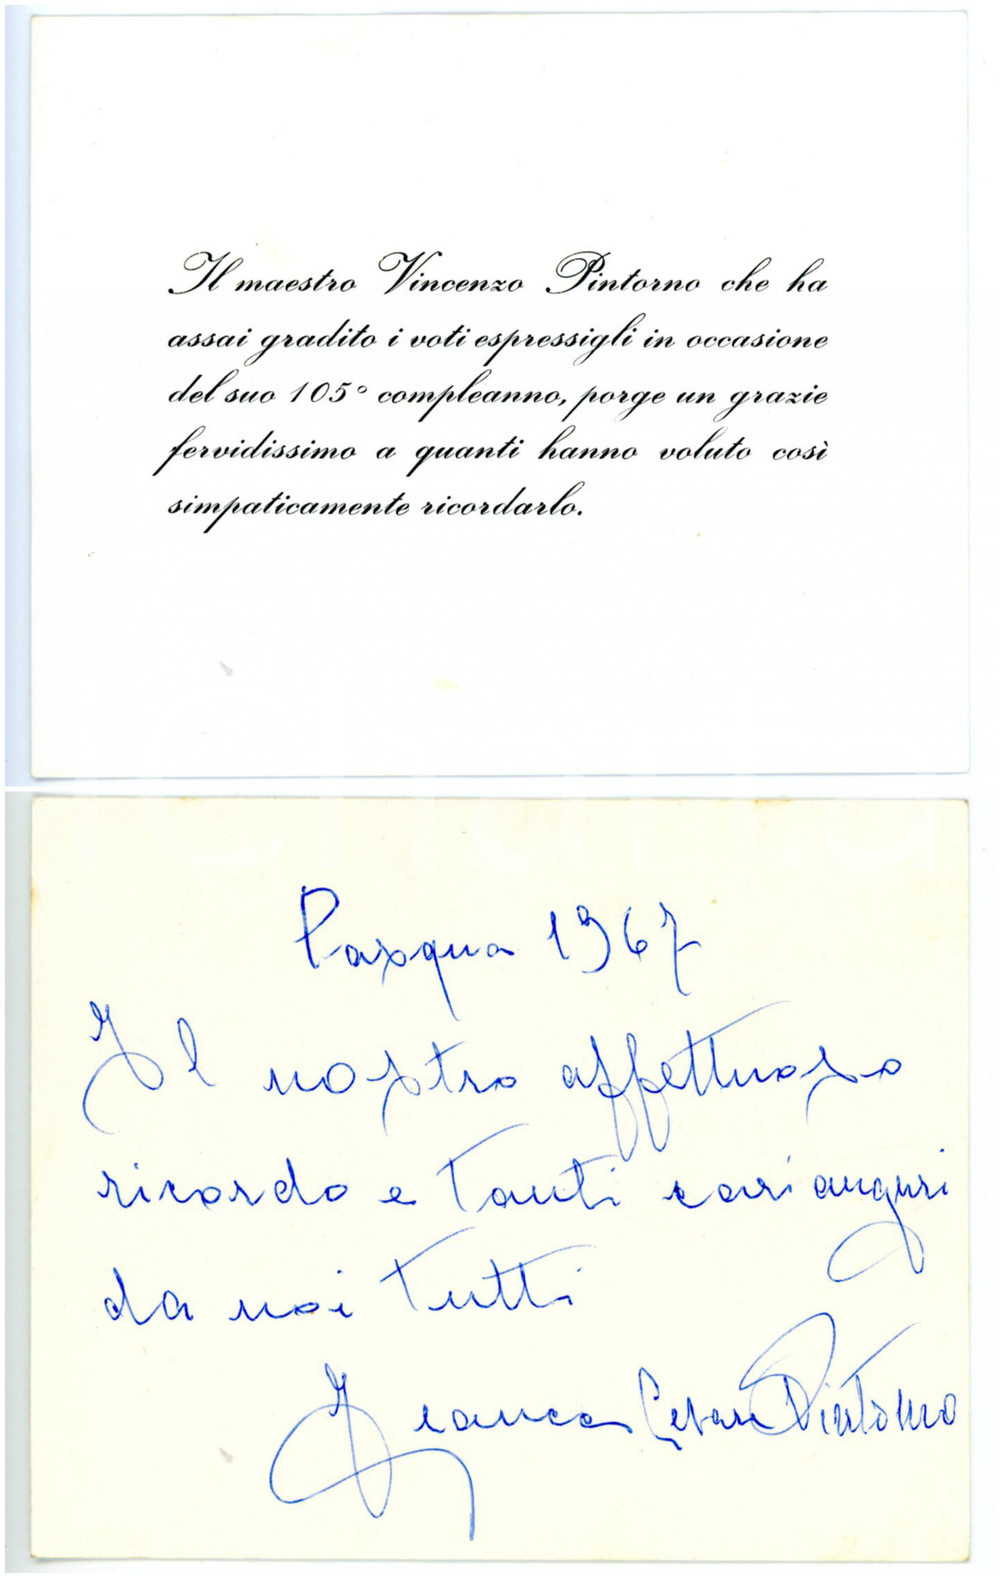 Il maestro Vincenzo Pintorno che ha
assai gradito i voti espressigli in occasione
del suo 105° compleanno, porge un grazie
fervidissimo a quanti hanno voluto così
simpaticamente ricordarlo.
Pasqua 1967
Il nostro affettuoso
ricordo e tanti cari auguri
da noi tutti
Franca Cesare Pintorno